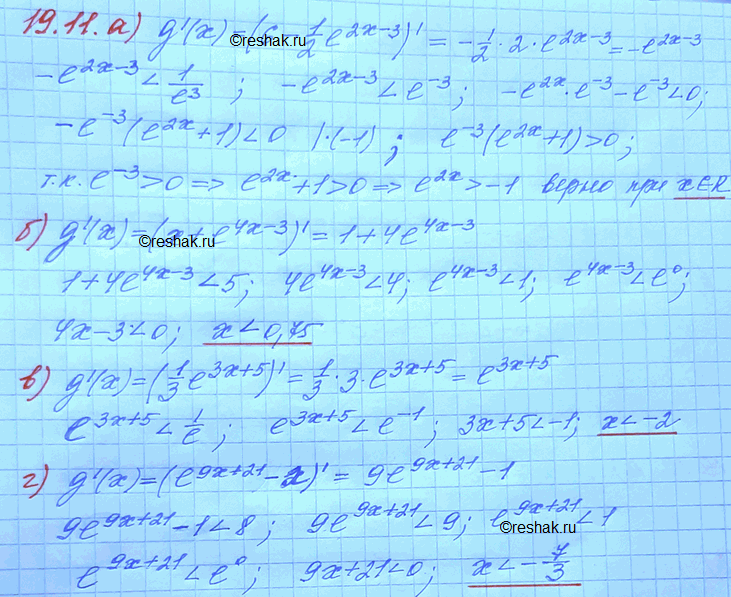 19.11. а) g'(x)=(6-1/2 e^(2x-3))' = -1/2·2·e^(2x-3) = -e^(2x-3)
©reshak.ru
-e^(2x-3) < 1/e^3 ; -e^(2x-3) < e^(-3); -e^(2x)·e^(-3) - e^(-3) < 0;
-e^(-3)(e^(2x)+1)<0 |·(-1) ; e^(-3)(e^(2x)+1)>0;
т.к. e^(-3)>0 => e^(2x)+1>0 => e^(2x)>-1 верно при x∈R
б) g'(x)=(x+e^(4x-3))' = 1+4e^(4x-3)
©reshak.ru
1+4e^(4x-3)<5; 4e^(4x-3)<4; e^(4x-3)<1; e^(4x-3)<e^0;
4x-3<0; x<0,75
в) g'(x)=(1/3 e^(3x+5))' = 1/3·3·e^(3x+5) = e^(3x+5)
e^(3x+5) < 1/e ; e^(3x+5) < e^(-1) ; 3x+5<-1; x<-2
г) g'(x)=(e^(9x+21)-x)' = 9e^(9x+21)-1
9e^(9x+21)-1<8 ; 9e^(9x+21)<9; e^(9x+21)<1
©reshak.ru
e^(9x+21)<e^0; 9x+21<0; x<-7/3